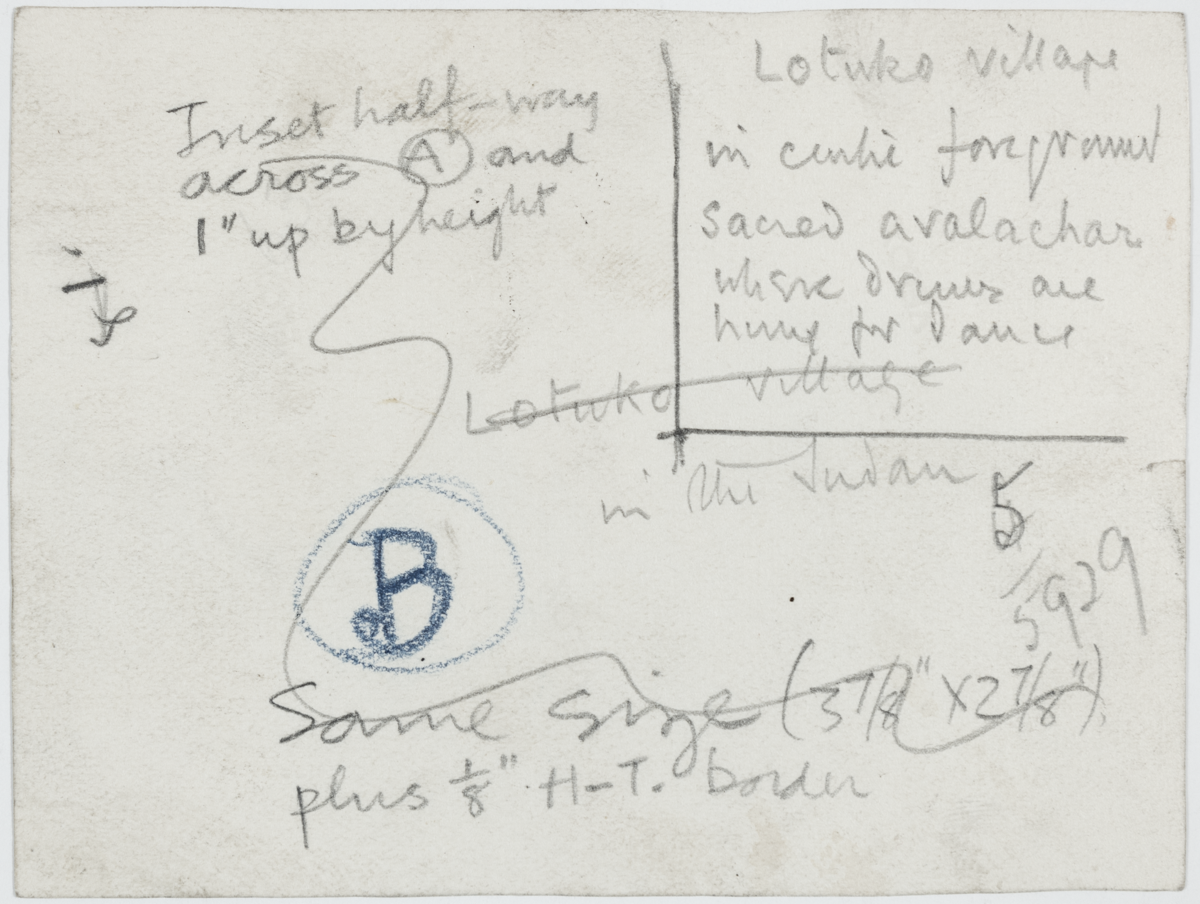 Inset half-way
across A and
1" up by height
Lotuko village
in centre foreground
sacred avalachar
where drums are
hung for dance
Lotuko village
in the Sudan
5
5929
B
Same size (3 7/8" X 2 7/8")
plus 1/8" H-T. border